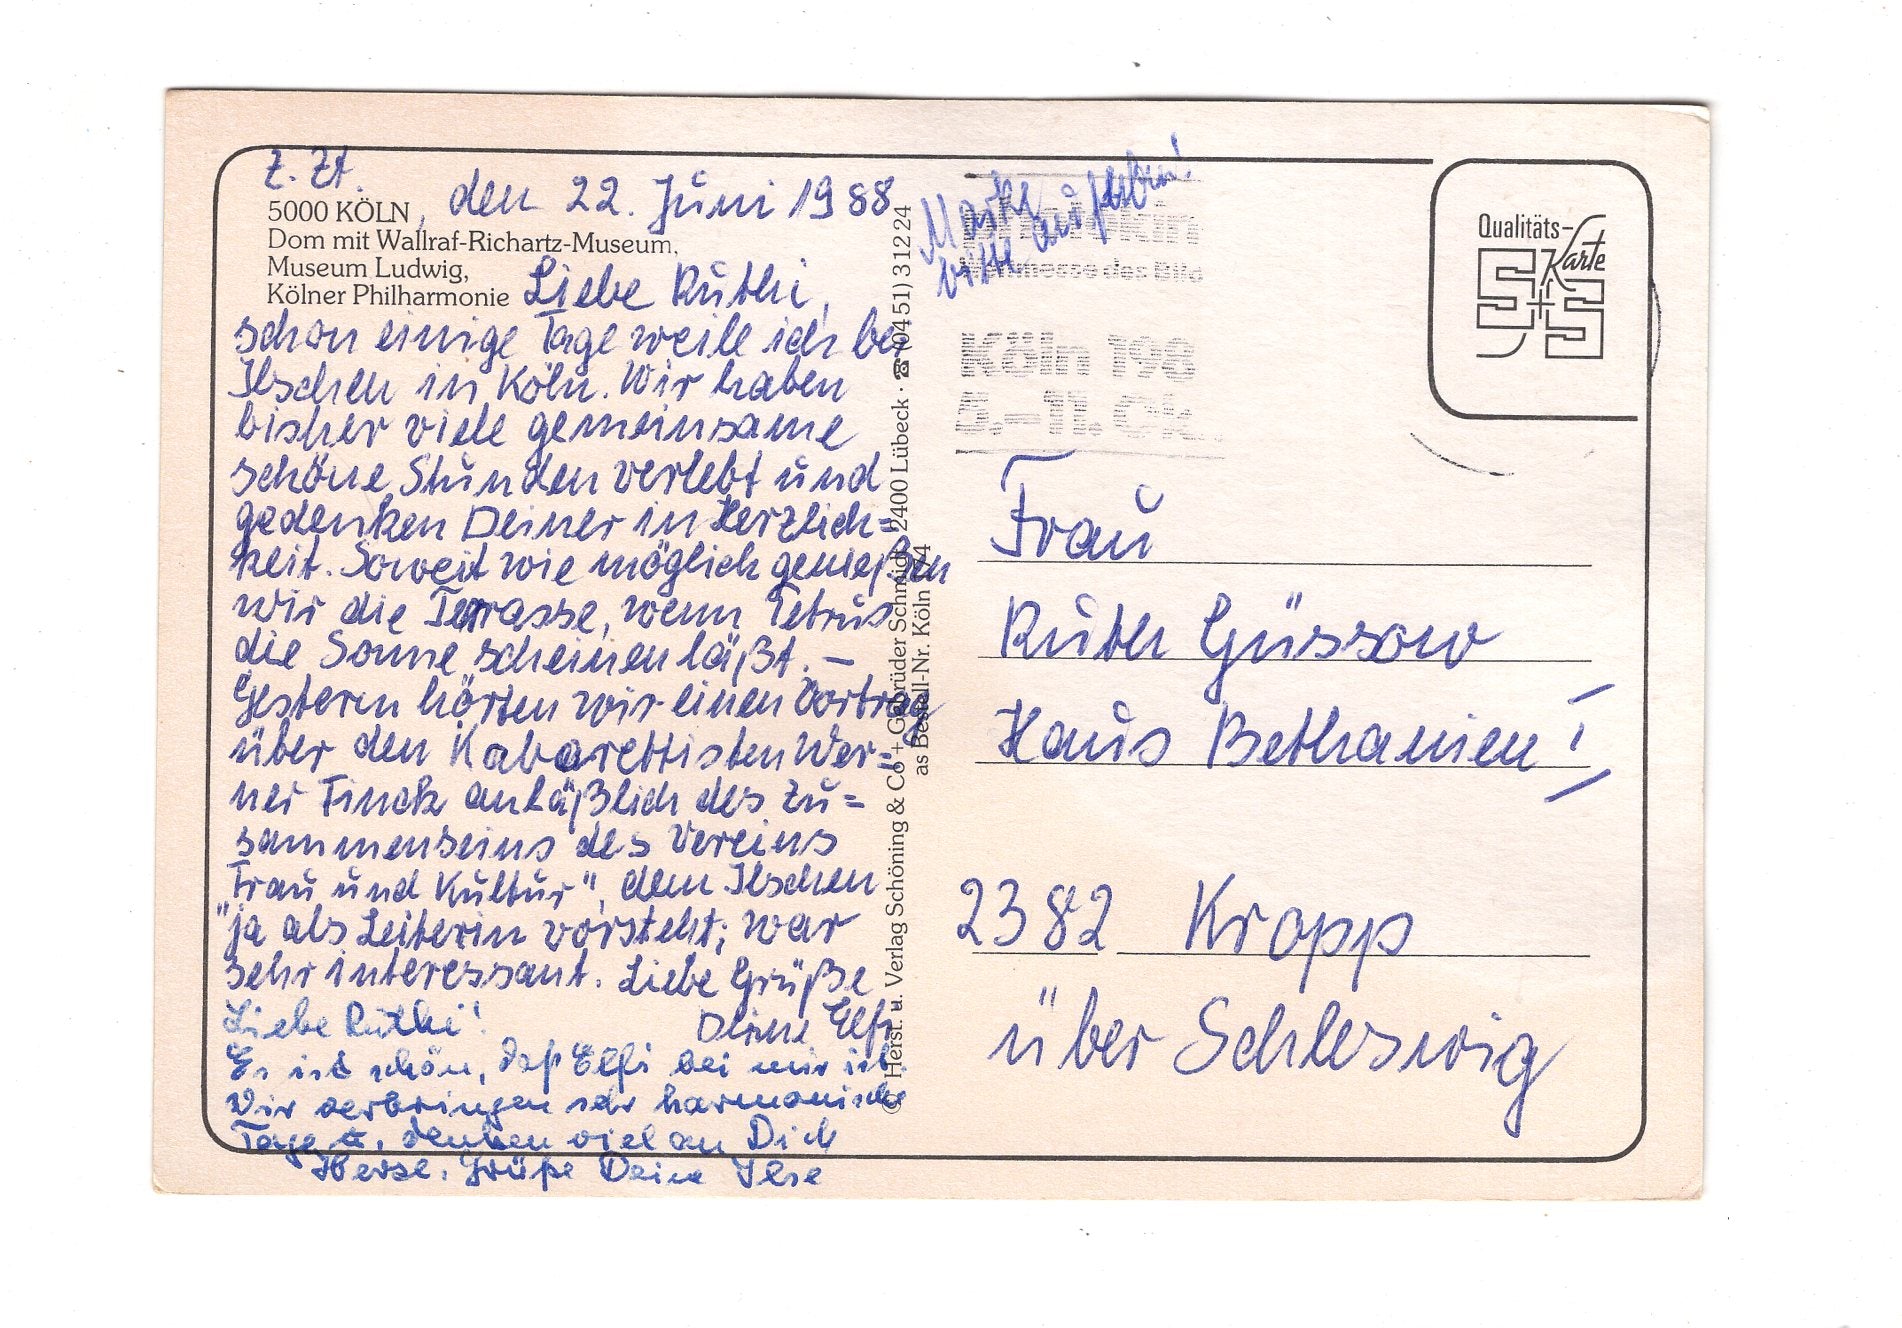 z. Zt.
5000 KÖLN, den 22. Juni 1988
Dom mit Wallraf-Richartz-Museum,
Museum Ludwig,
Kölner Philharmonie
Liebe Ruthi,
schon einige Tage weile ich bei
Ilschen in Köln. Wir haben
bisher viele gemeinsame
schöne Stunden verlebt und
gedenken Deiner in Herzlich=
keit. Soweit wie möglich genießen
wir die Terrasse, wenn Petrus
die Sonne scheinen läßt. –
Gestern hörten wir einen Vortrag
über den Kabarettisten Wer=
ner Finck anläßlich des Zu=
sammenseins des Vereins
"Frau und Kultur", dem Ilschen
ja als Leiterin vorsteht; war
sehr interessant. Liebe Grüße
Deine Elfi
Liebe Ruthi!
Es ist schön, daß Elfi bei mir ist.
Wir verbringen sehr harmonische
Tage u. denken viel an Dich
Herzl. Grüße Deine Ilse
Herst. u. Verlag Schöning & Co + Gebrüder Schmidt, 2400 Lübeck · ☎ (0451) 31224
as Bestell-Nr. Köln 74
Marke
bitte aufheben!
photokina
Weltmesse des Bild
Köln 198
5.–11. Ok.
Qualitäts-
Karte
S+S
Frau
Ruth Güssow
Haus Bethanien!
2382 Kropp
über Schleswig